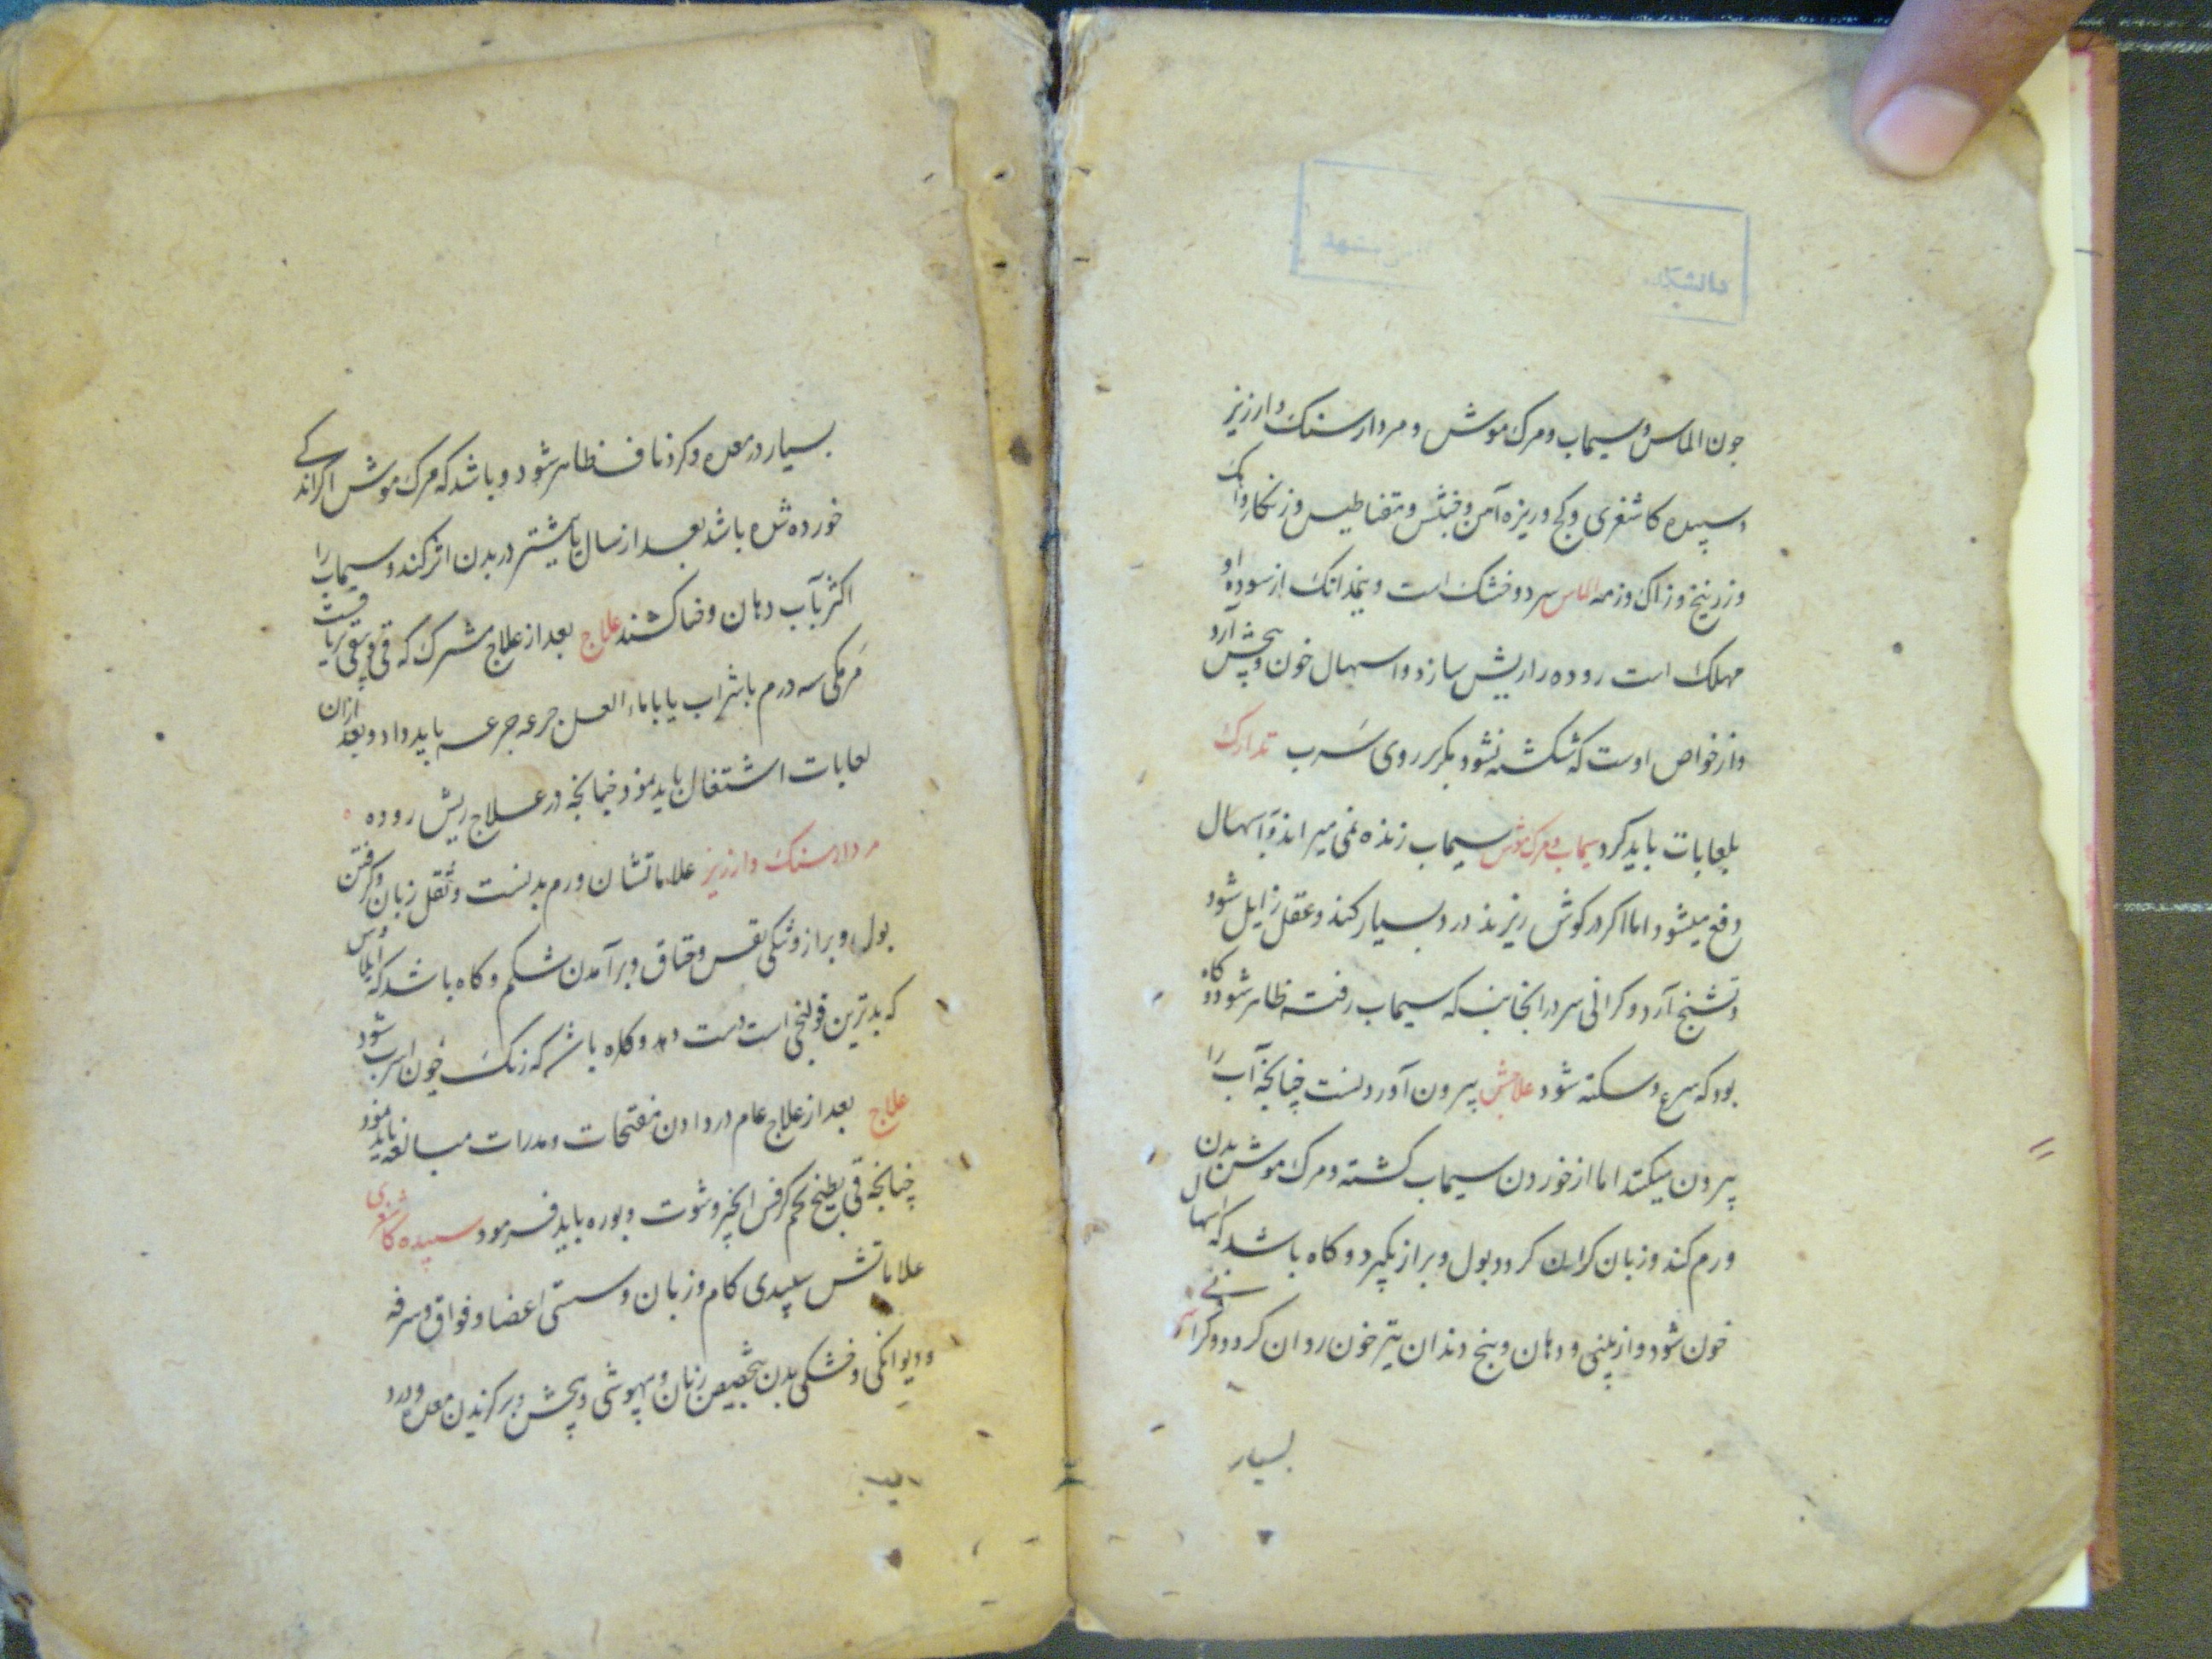 جون الماس و سیماب و مرک موش و مردارسنک و ارزیز
و سپیده کاشغری و کج و ریزه آهن و خبث و مقناطیس و زنکار و آهک
و زرنیخ و زاک و زمه الماس سرد و خشک است و پنجدانک از سوده او
مهلک است روده را ریش سازد و اسهال خون و پیچش آرد
و از خواص اوست که شکسته نشود مکر بر روی سرب تدارک
بلعابات باید کرد سیماب و مرک موش سیماب زنده نمی میراند و باسهال
دفع میشود اما اکر در کوش ریزند درد بسیار کند و عقل زایل شود
و تشنج آرد و کرانی سر در انجانب که سیماب رفته ظاهر شود و کاه
بود که صرع و سکته شود علاجش بیرون آوردنست چنانچه آب را
بیرون میکنند اما از خوردن سیماب کشته و مرک موش بدن
ورم کند و زبان کران کردد و بول و براز بگیرد و کاه باشد که اسهال
خون شود و از بینی و دهان و بیخ دندان نیز خون روان کردد و کرانی
بسیار
بسیار در معده و کرد ناف ظاهر شود و باشد که مرک موش اکر اندکی
خورده شده باشد بعد از سال یا بیشتر در بدن اثر کند و سیماب را
اکثر بآب دهان و حنا کشند علاج بعد از علاج مشترک که قی و سقی تریاقست
مر مکی سه درم با شراب یا با ماء العسل جرعه جرعه باید داد و بعد ازان
لعابات اشتغال باید نمود چنانچه در علاج ریش روده
مردارسنک و ارزیز علاماتشان ورم بدنست و ثقل زبان و کرفتن
بول و براز و تنکی نفس و خناق و برآمدن شکم و کاه باشد که ایلاوس
که بدترین قولنجی است دست دهد و کاه باشد که رنک چون اسرب شود
علاج بعد از علاج عام در دادن مفتحات و مدرات مبالغه باید نمود
چنانچه قی بطبیخ تخم کرفس انجیر و شوت و بوره باید فرمود سپیده کاشغری
علاماتش سپیدی کام و زبان و سستی اعضا و فواق و سرفه
و دیوانکی و خشکی بدن بتخصیص زبان و بیهوشی و پیچش و بر کزیدن معده و درد